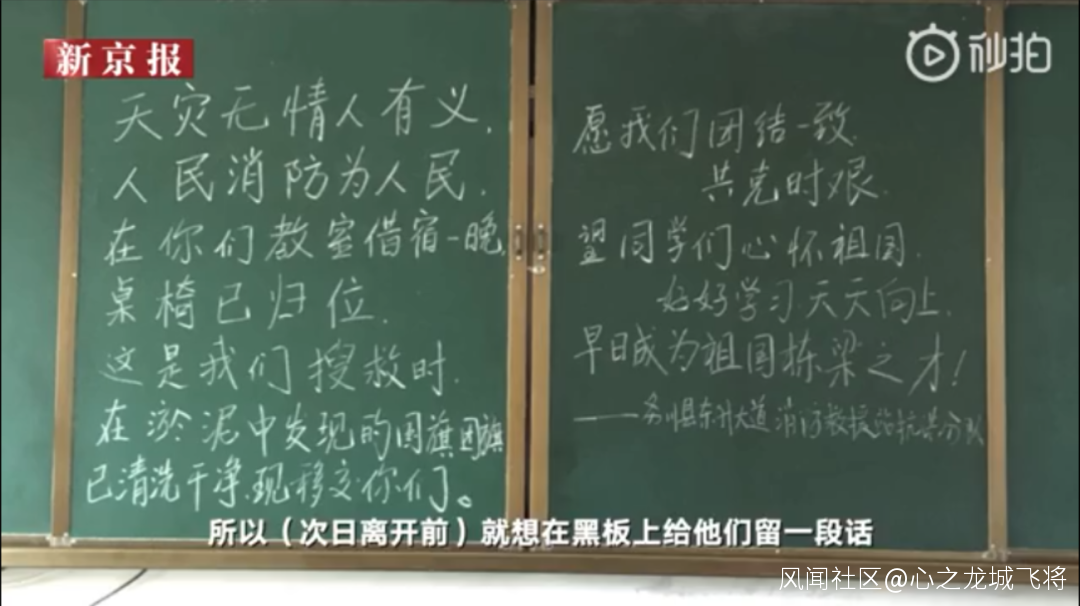 新京报
秒拍
天灾无情人有义,
人民消防为人民.
在你们教室借宿一晚,
桌椅已归位.
这是我们搜救时.
在淤泥中发现的国旗团旗
已清洗干净.现移交你们。
愿我们团结一致.
共克时艰.
望同学们心怀祖国.
好好学习.天天向上.
早日成为祖国栋梁之才!
——务川县东升大道消防救援站抗洪分队
所以（次日离开前）就想在黑板上给他们留一段话
风闻社区@心之龙城飞将